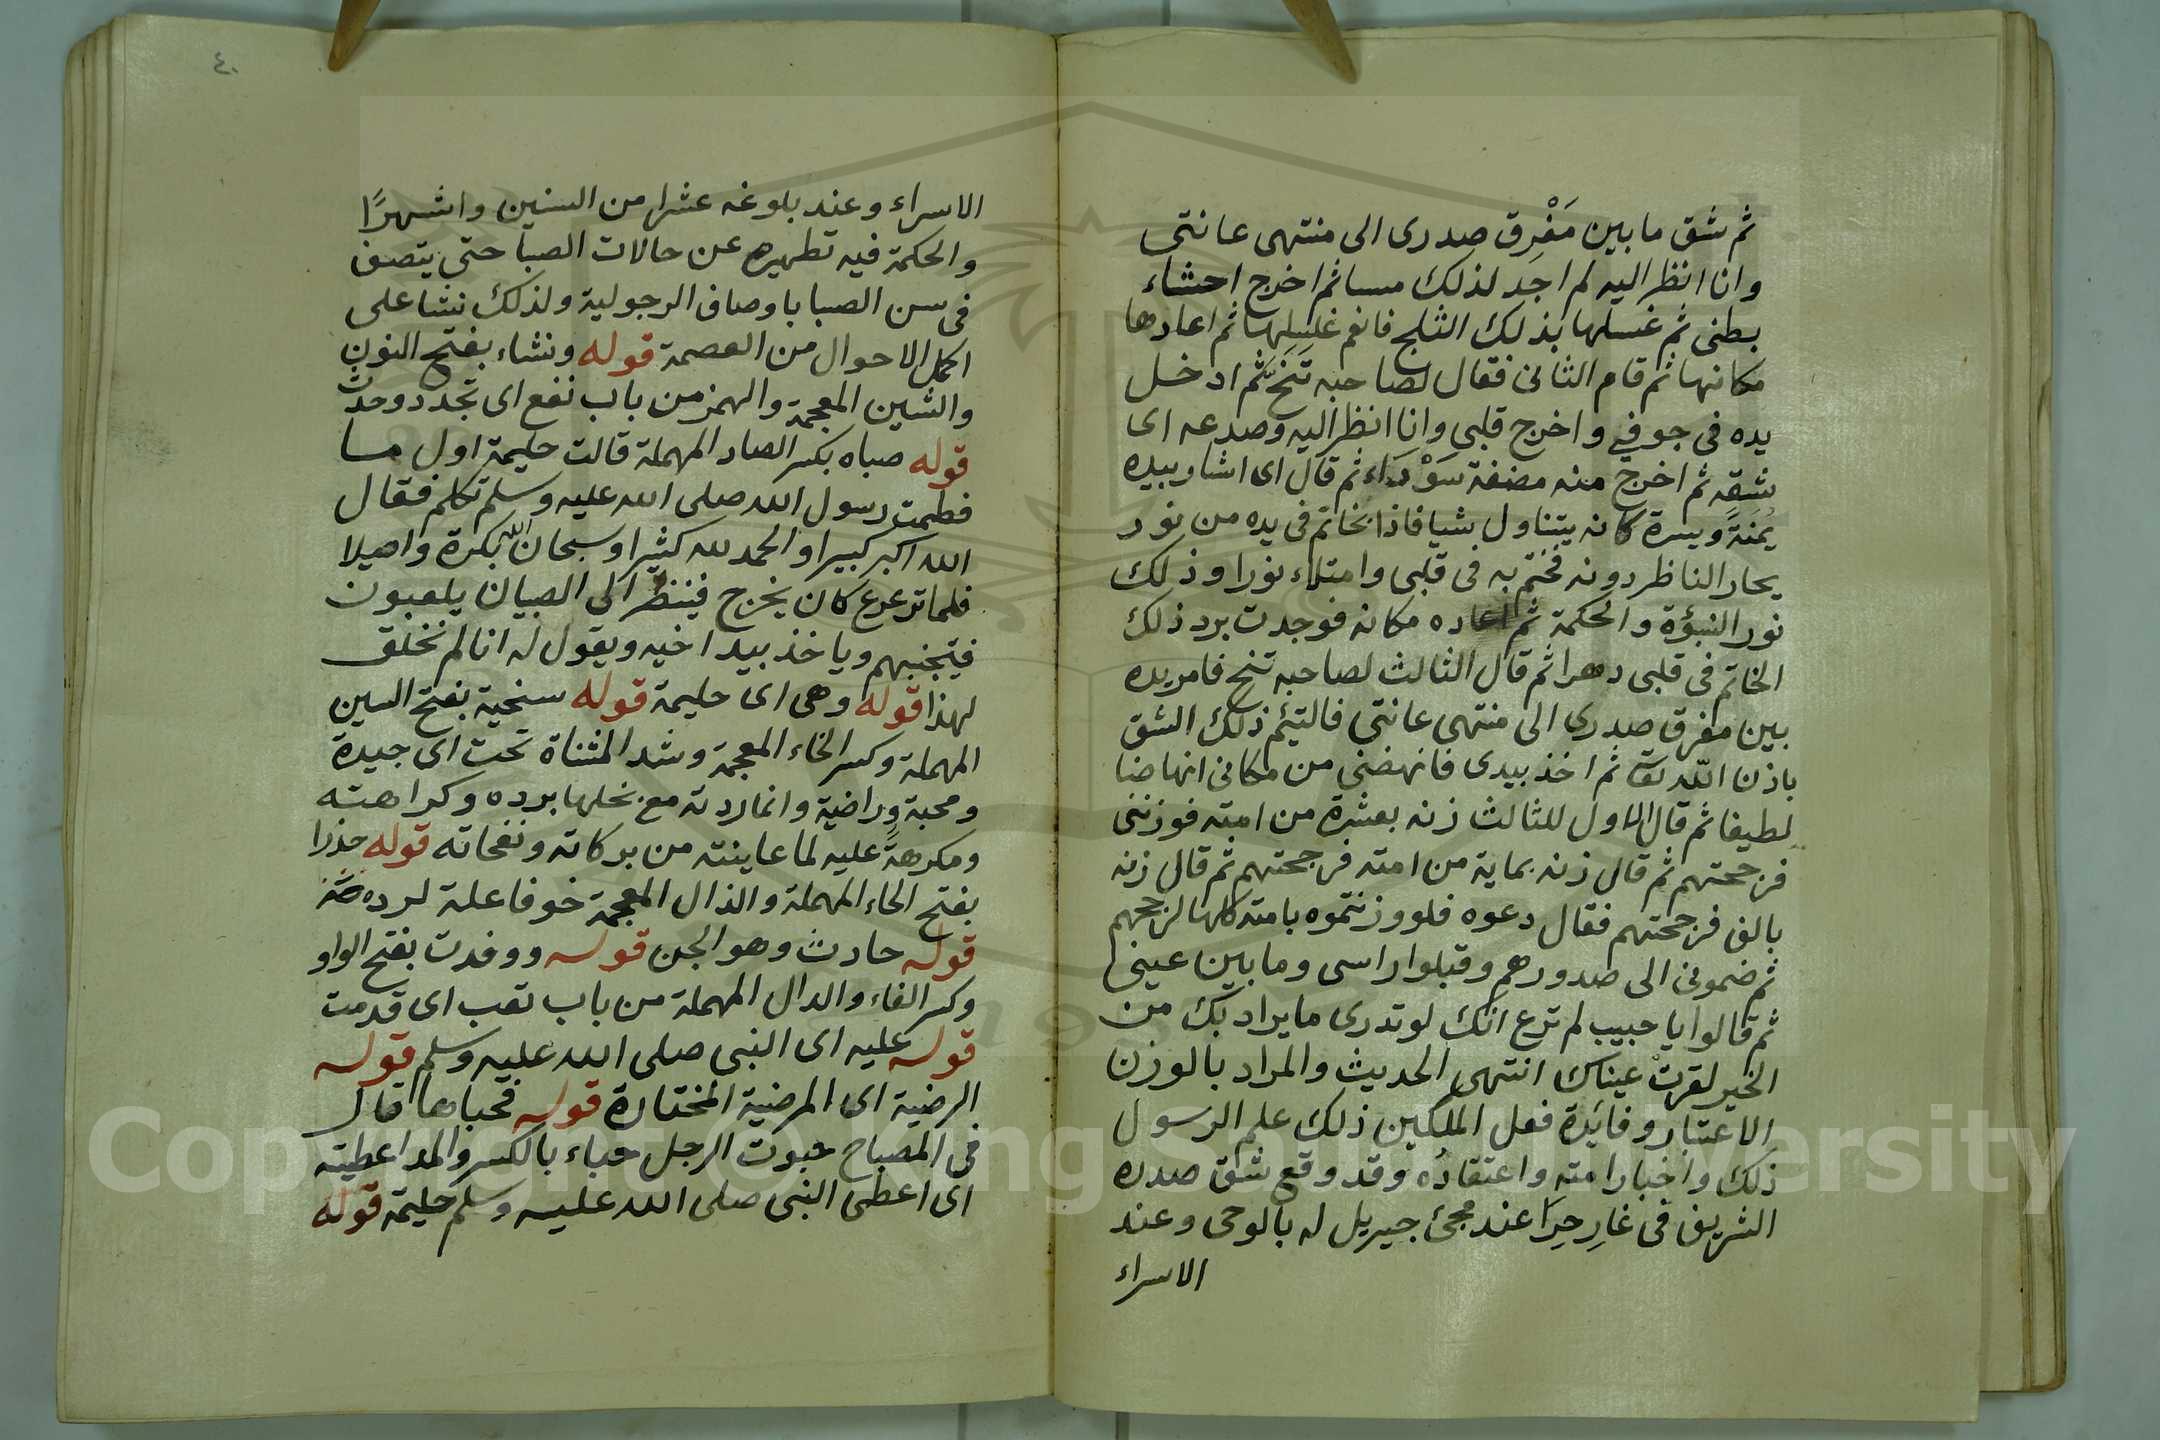 ثم شق ما بين مَفْرِق صدرى الى منتهى عانتى
وانا انظر اليه لم اجد لذلك مسا ثم اخرج احشاء
بطنى ثم غسلها بذلك الثلج فانعم غسلها ثم اعادها
مكانها ثم قام الثانى فقال لصاحبه تَنَحَّ ثم ادخل
يده فى جوفى واخرج قلبى وانا انظر اليه وصدعه اى
شقه ثم اخرج منه مضغة سَوْدَاء ثم قال اى اشار بيده
يُمْنَةً ويسرة كانه يتناول شيا فاذا بخاتم فى يده من نور
يحار الناظر دونه فختم به فى قلبى وامتلاء نورا وذلك
نور النبؤة والحكمة ثم اعاده مكانه فوجدت برد ذلك
الخاتم فى قلبى دهرا ثم قال الثالث لصاحبه تنح فامر يده
بين مفرق صدرى الى منتهى عانتى فالتيئم ذلك الشق
باذن الله تعا ثم اخذ بيدى فانهضنى من مكانى انهاضا
لطيفا ثم قال الاول للثالث زنه بعشرة من امته فوزننى
فرجحتهم ثم قال زنه بماية من امته فرجحتهم ثم قال زنه
بالف فرجحتهم فقال دعوه فلو وزنتموه بامته كلها لرجحهم
ثم ضمونى الى صدورهم وقبلوا راسى وما بين عينى
ثم قالوا يا حبيب لم ترع انك لو تدرى ما يراد بك من
الخير لقرت عيناك انتهى الحديث والمراد بالوزن
الاعتبار وفايدة فعل الملكين ذلك علم الرسول
ذلك واخبار امته واعتقاده وقد وقع شق صدره
الشريف فى غارِ حِرَا عند مجئ جبريل له بالوحى وعند
الاسراء
٤٠
الاسراء وعند بلوغه عشرا من السنين واشهرًا
والحكمة فيه تطهيره عن حالات الصبا حتى يتصف
فى سن الصبا باوصاف الرجولية ولذلك نشا على
اكمل الاحوال من العصمة قوله ونشاء بفتح النون
والشين المعجمة والهمز من باب نفع اى تجدد وحدث
قوله صباه بكسر الصاد المهملة قالت حليمة اول ما
فطمت رسول الله صلى الله عليه وسلم تكلم فقال
الله اكبر كبيرا والحمد لله كثيرا وسبحان الله بكرة واصيلا
فلما ترعرع كان يخرج فينظر الى الصبيان يلعبون
فيتجنبهم وياخذ بيد اخيه ويقول له انا لم نخلق
لهذا قوله وهى اى حليمة قوله سنحية بفتح السين
المهملة وكسر الخاء المعجمة وشد المثناة تحت اى جيدة
ومحبة وراضية وانما ردته مع بخلها برده وكراهته
ومكرهةً عليه لما عاينته من بركاته ونفحاته قوله حذرا
بفتح الحاء المهملة والذال المعجمة خوفا علة لرده
قوله حادث وهو الجن قوله ووفدت بفتح الواو
وكسر الفاء والدال المهملة من باب تعب اى قدمت
قوله عليه اى النبى صلى الله عليه وسلم قوله
الرضية اى المرضية المختارة قوله فحباهما قال
فى المصباح حبوت الرجل حباء بالكسر والمد اعطيته
اى اعطى النبى صلى الله عليه وسلم حليمة قوله
Copyright © King Saud University